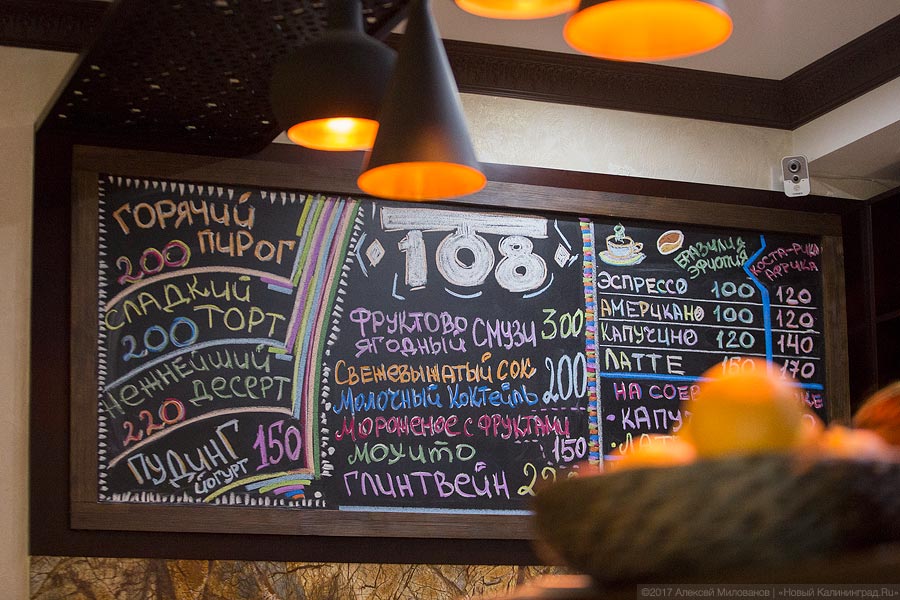 ГОРЯЧИЙ
ПИРОГ
200
СЛАДКИЙ
ТОРТ
200
НЕЖНЕЙШИЙ
ДЕСЕРТ
220
ПУДИНГ
ЙОГУРТ
150
108
ФРУКТОВО
ЯГОДНЫЙ СМУЗИ 300
СВЕЖЕВЫЖАТЫЙ СОК
МОЛОЧНЫЙ КОКТЕЙЛЬ 200
МОРОЖЕНОЕ С ФРУКТАМИ
МОХИТО 150
ГЛИНТВЕЙН
БРАЗИЛИЯ
ЭФИОПИЯ
КОСТА-РИКА
АФРИКА
ЭСПРЕССО 100 120
АМЕРИКАНО 100 120
КАПУЧИНО 120 140
ЛАТТЕ 150 170
НА
©2017 Алексей Милованов | «Новый Калининград.Ru»